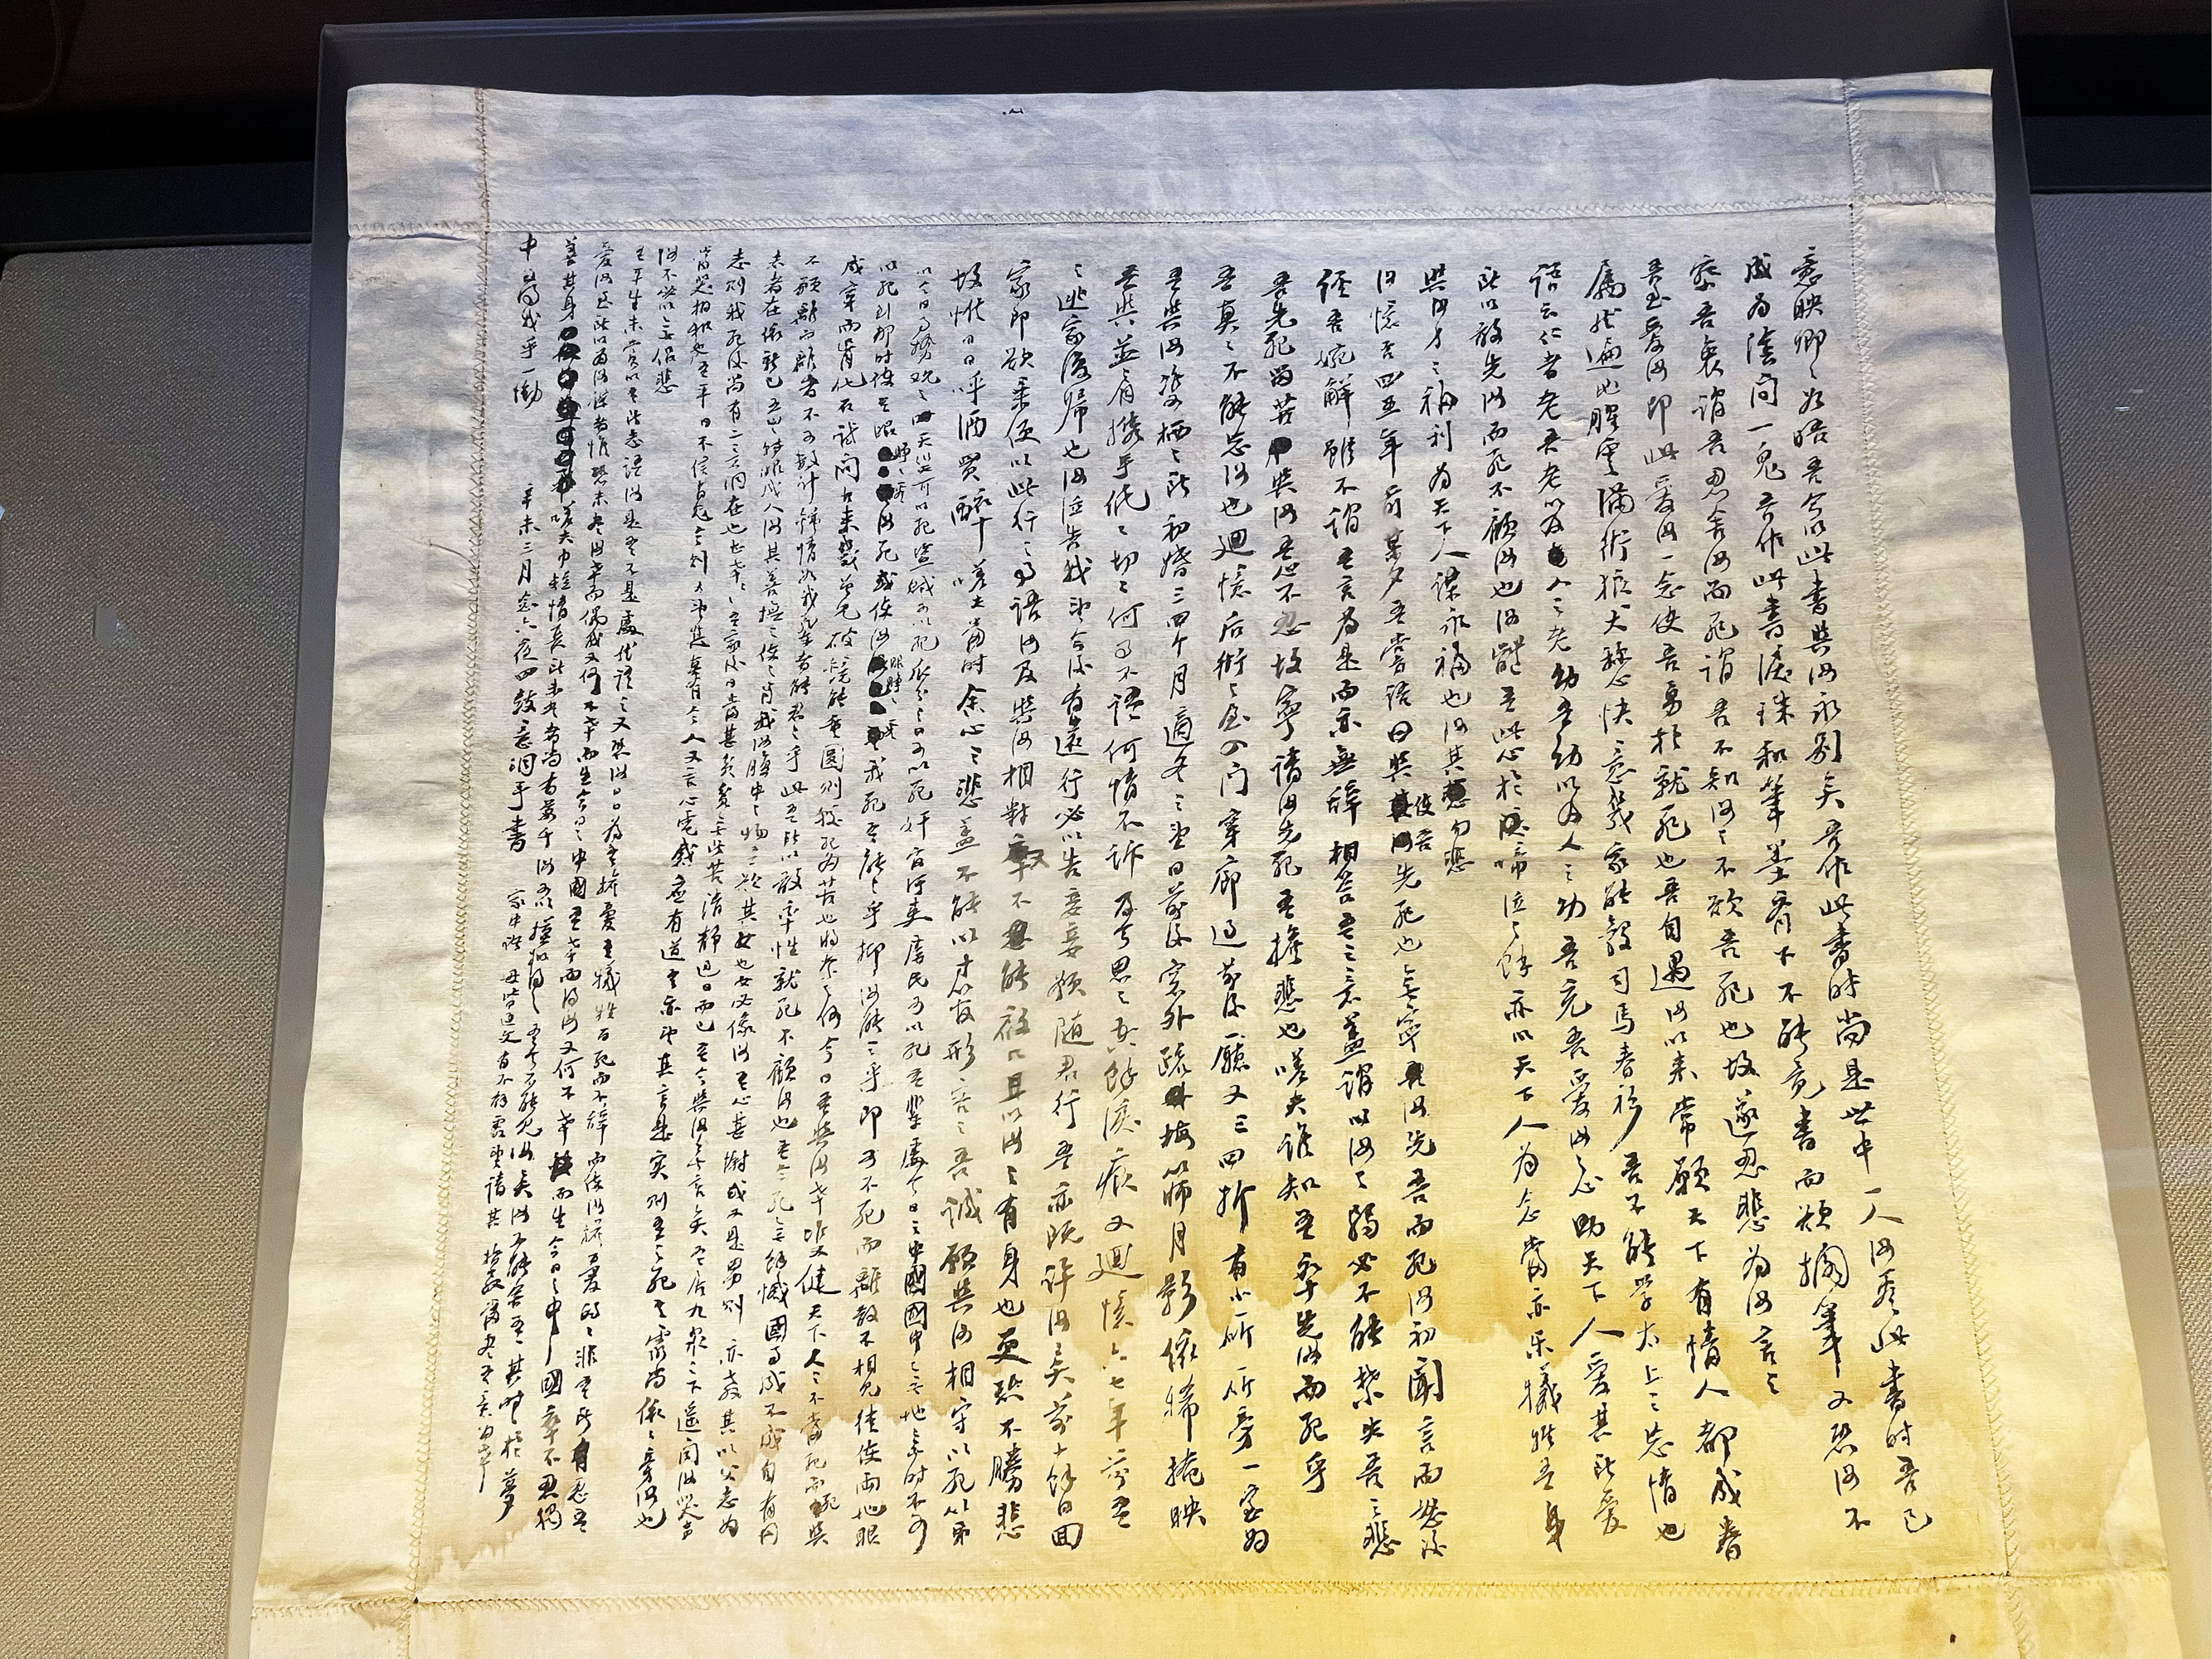 意映卿卿如晤吾今以此書與汝永别矣吾作此書时尚是世中一人汝看此書时吾已
成为陰间一鬼吾作此書淚珠和筆墨齊下不能竟書而欲擱筆又恐汝不
察吾衷謂吾忍舍汝而死謂吾不知汝之不欲吾死也故遂忍悲为汝言之
吾至爱汝即此爱汝一念使吾勇於就死也吾自遇汝以来常願天下有情人都成眷
属然遍地腥雲滿街狼犬稱心快意幾家能彀司馬春衫吾不能学太上之忘情也
語云仁者老吾老以及人之老幼吾幼以及人之幼吾充吾爱汝之心助天下人爱其所爱
所以敢先汝而死不顧汝也汝體吾此心於啼泣之餘亦以天下人为念當亦乐犧牲吾身
與汝身之福利为天下人谋永福也汝其勿悲
汝憶否四五年前某夕吾嘗語曰與使吾先死也無寧汝先吾而死汝初聞言而怒後
經吾婉解雖不謂吾言为是而亦無辞相答吾之意蓋謂以汝之弱必不能禁失吾之悲
吾先死留苦與汝吾心不忍故寧請汝先死吾擔悲也嗟夫誰知吾卒先汝而死乎
吾真々不能忘汝也迴憶后街之屋入门穿廊过前後廳又三四折有小所所旁一室为
吾與汝雙栖之所初婚三四个月適冬之望日前後窓外疏梅篩月影依稀掩映
吾與並肩携手低々切々何事不語何情不訴及今思之空餘淚痕又迴憶六七年前吾
之逃家復歸也汝泣告我望今後有遠行必以告妾妾願随君行吾亦既许汝矣前十餘日回
家即欲乘便以此行之事語汝及與汝相對又不能啟口且以汝之有身也更恐不勝悲
故惟日日呼酒買醉嗟夫當时余心之悲蓋不能以寸管形容之吾誠願與汝相守以死以第
以今日事勢观之天災可以死盗贼可以死瓜分之日可以死奸官污吏虐民可以死吾辈處今日之中國國中无地无时不可
以死到那时使吾眼睁睁看汝死或使汝眼睁睁看我死吾能之乎抑汝能之乎即可不死而離散不相見徒使兩地眼
成穿而骨化石试问古来幾曾見破鏡能重圆则較死为苦也将奈之何今日吾與汝幸雙健天下人人不當死而死與
不願離而離者不可數計鍾情如我輩者能忍之乎此吾所以敢率性就死不顧汝也吾今死無餘憾國事成不成自有同
志者在依新已五歲转眼成人汝其善撫之使之肖我汝腹中之物吾疑其女也女必像汝吾心甚慰或又是男则亦教其以父志为
志则我死後尚有二意洞在也甚幸々々吾家後日當甚貧貧無所苦清静过日而已吾今與汝無言矣吾居九泉之下遥闻汝哭声
當哭相和也吾平日不信有鬼今则又望其真有今人又言心電感應有道吾亦望其言是实则吾之死吾灵尚依依旁汝也
汝不必以無侣悲
吾平生未嘗以吾所志語汝是吾不是處然語之又恐汝日日为吾擔憂吾犧牲百死而不辞而使汝擔憂的的非吾所忍吾
爱汝至所以为汝谋者惟恐未尽汝幸而偶我又何不幸而生今日之中國吾幸而得汝又何不幸而生今日之中國卒不忍獨
善其身嗟夫巾短情長所未尽者尚有萬千汝可以模擬得之吾今不能見汝矣汝不能舍吾其时时於夢
中尋我乎一慟 辛未三月念六夜四鼓意洞手書
家中诸母皆通文有不解處望請其指教當尽吾意为幸